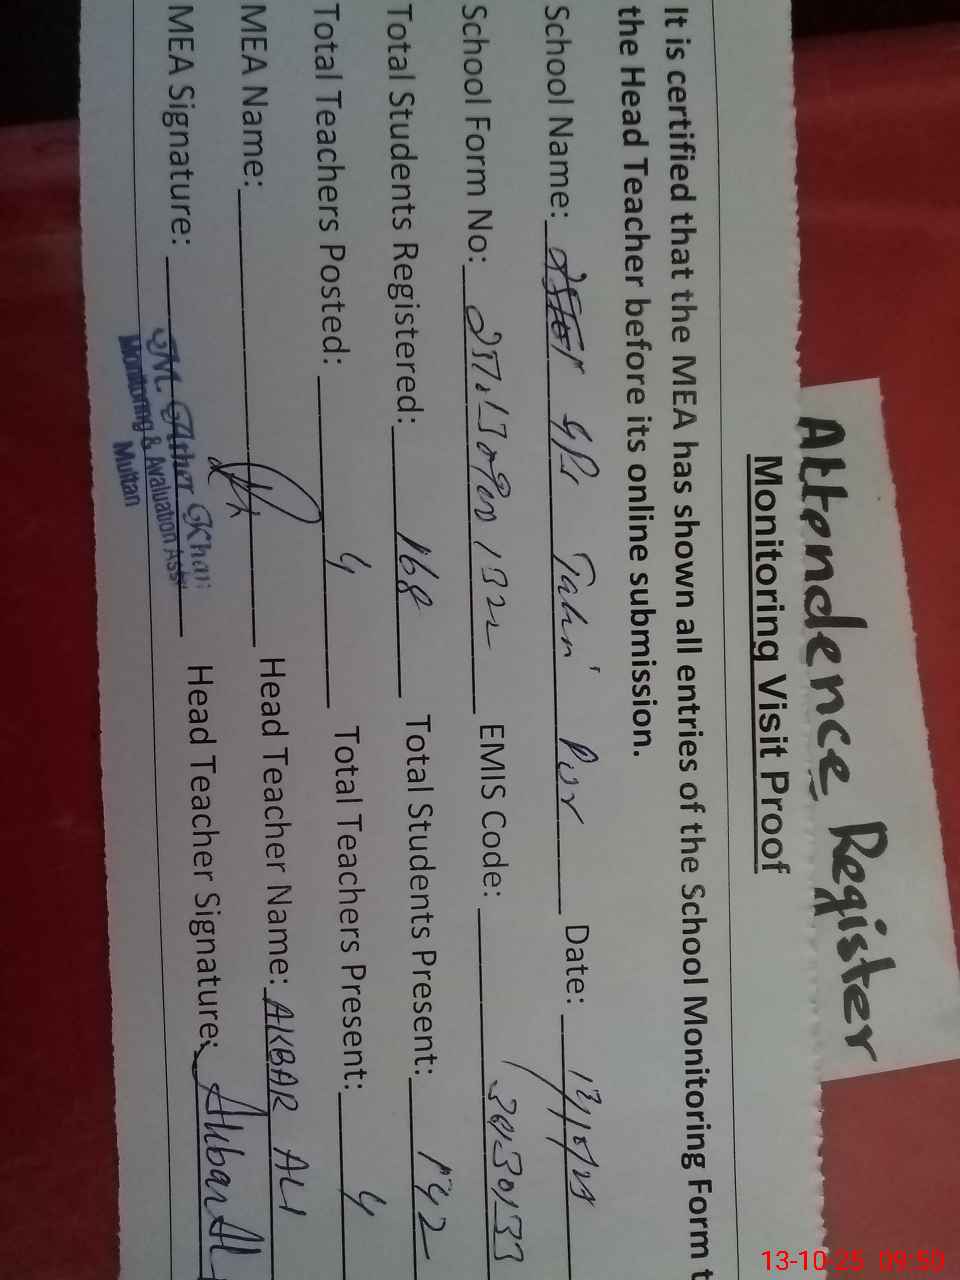 Attendence Register
Monitoring Visit Proof
It is certified that the MEA has shown all entries of the School Monitoring Form t
the Head Teacher before its online submission.
School Name: GPS Tahir Pur Date: 13/10/25
School Form No: EMIS Code:
Total Students Registered: 168 Total Students Present: 142
Total Teachers Posted: 4 Total Teachers Present: 4
MEA Name: Head Teacher Name: AKBAR ALI
MEA Signature: Head Teacher Signature: Akbar Al
Khan
Monitoring & Avaluation Asst
Multan
13-10-25 09:50